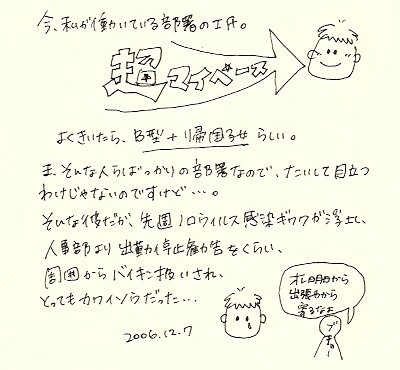 今、私が働いている部署のエ丹。
超マイペース
よくきいたら、B型+帰国子女らしい。
ま、そんな人らばっかりの部署なので、たいして目立つ
わけじゃないのですけど…。
そんな彼だが、先週ノロウィルス感染ギワクが浮上し、
人事部より出勤停止勧告をくらい、
周囲からバイキン扱いされ、
とってもカワイソウだった…
オレ明日から
出張やから
寄るなよ
2006.12.7